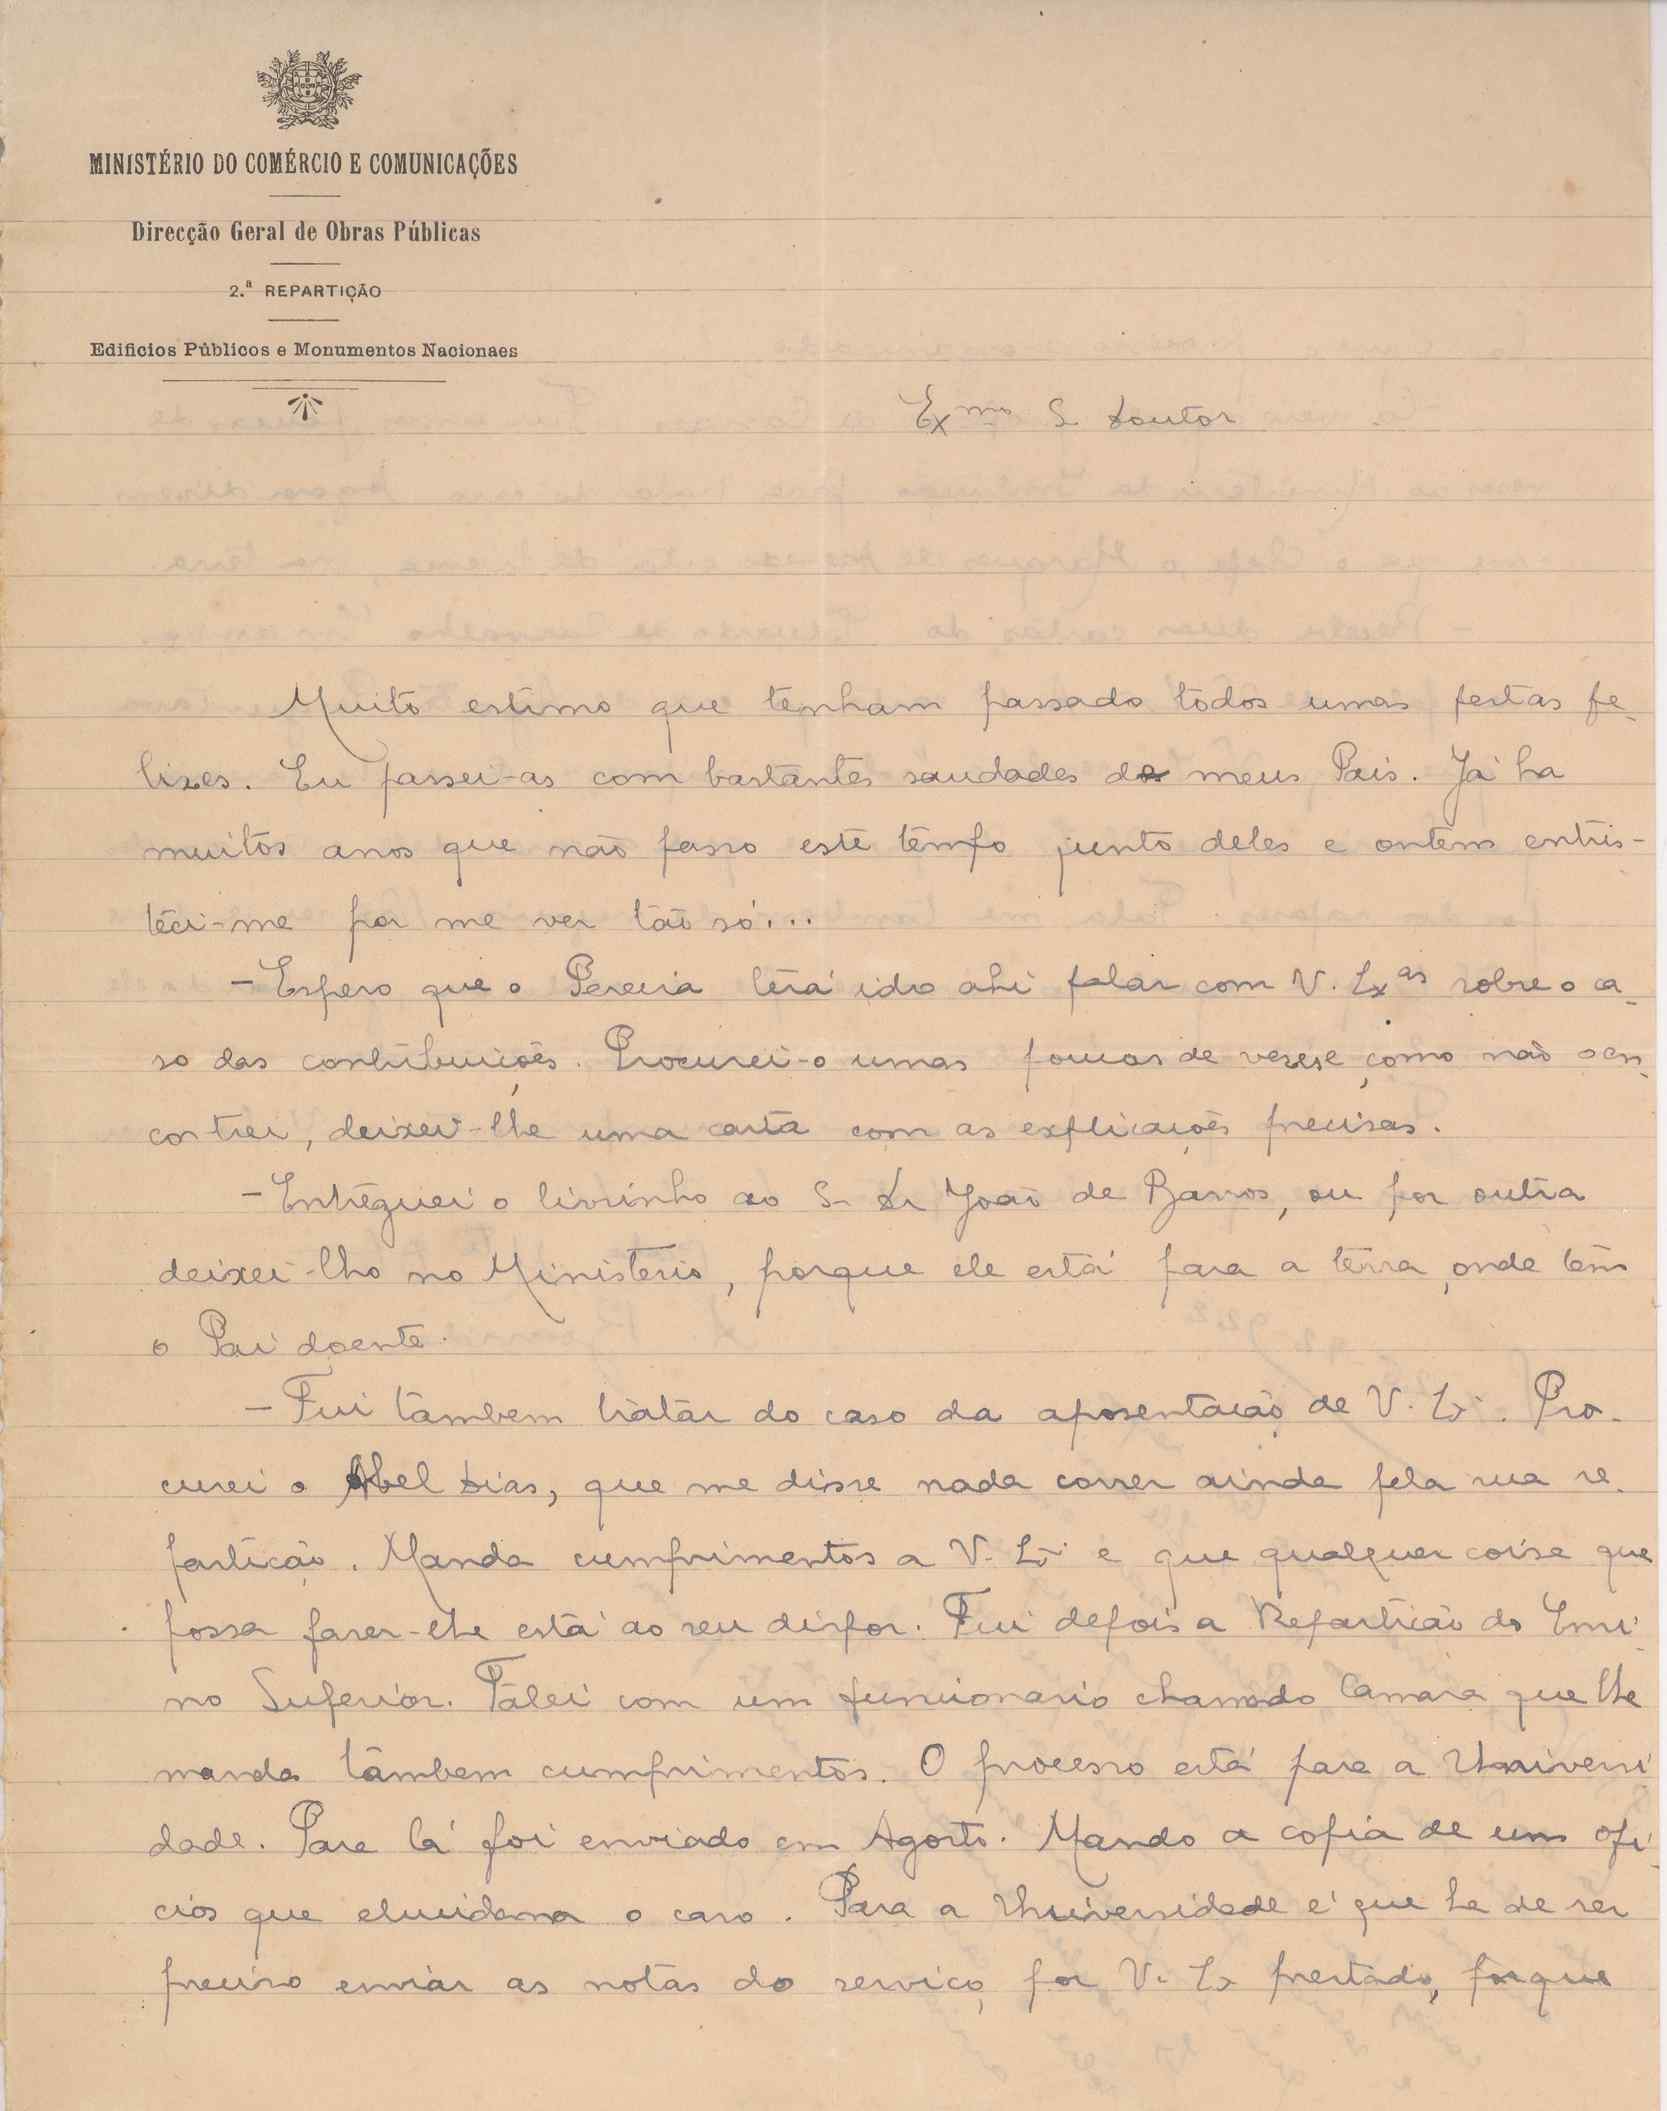 MINISTÉRIO DO COMÉRCIO E COMUNICAÇÕES
Direcção Geral de Obras Públicas
2.ª REPARTIÇÃO
Edificios Públicos e Monumentos Nacionaes
Exmo S. Doutor
Muito estimo que tenham passado todos umas festas fe-
lizes. Eu passei-as com bastantes saudades dos meus Pais. Já ha
muitos anos que não passo este tempo junto deles e ontem entris-
teci-me por me ver tão só...
- Espero que o Pereira terá ido ahi falar com V. Exas sobre o ca-
so das contribuições. Procurei-o umas poucas de vezes e, como não o en-
contrei, deixei-lhe uma carta com as explicações precisas.
- Entreguei o livrinho ao S. Dr João de Barros, ou por outra
deixei-lho no Ministerio, porque ele está para a terra, onde tem
o Pai doente.
- Fui tambem tratar do caso da aposentação de V. Ex. Pro-
curei o Abel Dias, que me disse nada correr ainda pela sua re-
partição. Manda cumprimentos a V. Ex. e que qualquer coisa que
possa fazer-lhe está ao seu dispor. Fui depois a Repartição do Ensi-
no Superior. Falei com um funcionario chamado Camara que lhe
manda tambem cumprimentos. O processo está para a Universi-
dade. Para lá foi enviado em Agosto. Mando a copia de uns ofi-
cios que elucidam o caso. Para a Universidade é que ha de ser
preciso enviar as notas do serviço, por V. Ex prestado, porque